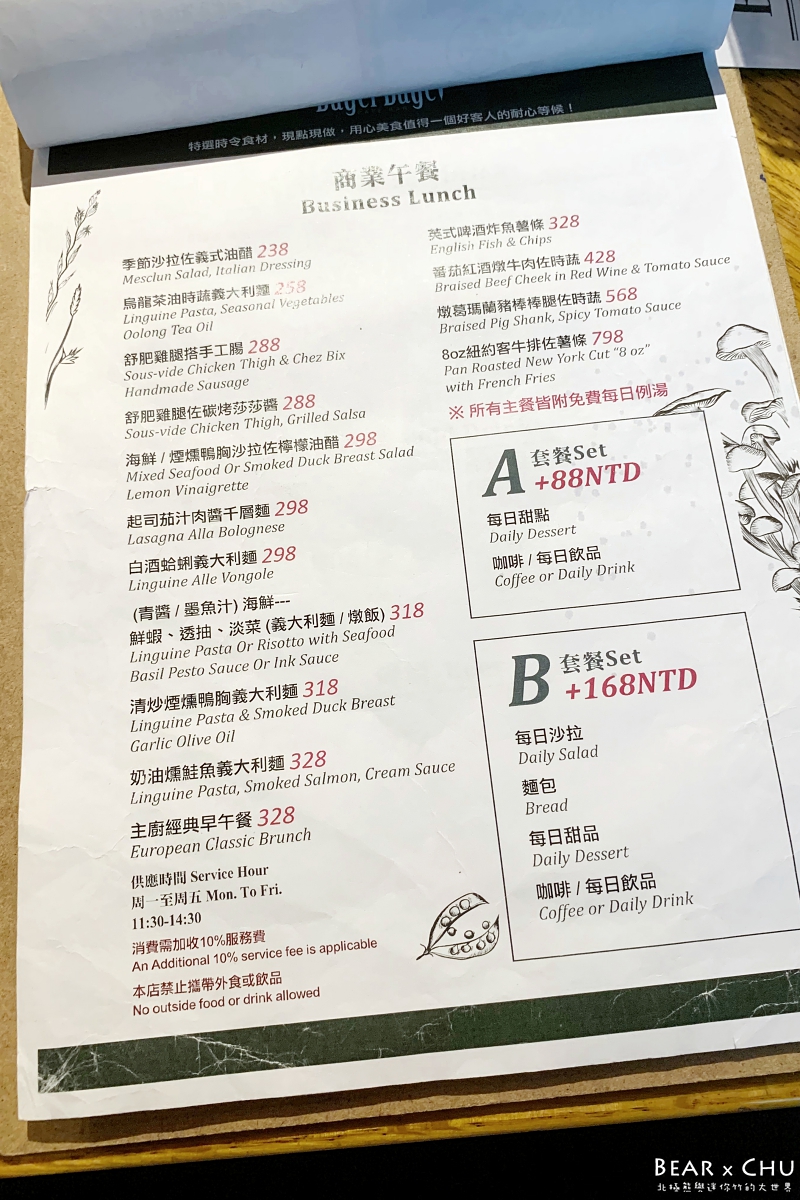 特選時令食材，現點現做，用心美食值得一個好客人的耐心等候！
商業午餐
Business Lunch
季節沙拉佐義式油醋 238
Mesclun Salad, Italian Dressing
烏龍茶油時蔬義大利麵 258
Linguine Pasta, Seasonal Vegetables
Oolong Tea Oil
舒肥雞腿搭手工腸 288
Sous-vide Chicken Thigh & Chez Bix
Handmade Sausage
舒肥雞腿佐碳烤莎莎醬 288
Sous-vide Chicken Thigh, Grilled Salsa
海鮮 / 煙燻鴨胸沙拉佐檸檬油醋 298
Mixed Seafood Or Smoked Duck Breast Salad
Lemon Vinaigrette
起司茄汁肉醬千層麵 298
Lasagna Alla Bolognese
白酒蛤蜊義大利麵 298
Linguine Alle Vongole
(青醬 / 墨魚汁) 海鮮---
鮮蝦、透抽、淡菜 (義大利麵 / 燉飯) 318
Linguine Pasta Or Risotto with Seafood
Basil Pesto Sauce Or Ink Sauce
清炒煙燻鴨胸義大利麵 318
Linguine Pasta & Smoked Duck Breast
Garlic Olive Oil
奶油燻鮭魚義大利麵 328
Linguine Pasta, Smoked Salmon, Cream Sauce
主廚經典早午餐 328
European Classic Brunch
供應時間 Service Hour
周一至周五 Mon. To Fri.
11:30-14:30
消費需加收10%服務費
An Additional 10% service fee is applicable
本店禁止攜帶外食或飲品
No outside food or drink allowed
英式啤酒炸魚薯條 328
English Fish & Chips
蕃茄紅酒燉牛肉佐時蔬 428
Braised Beef Cheek in Red Wine & Tomato Sauce
燉葛瑪蘭豬棒棒腿佐時蔬 568
Braised Pig Shank, Spicy Tomato Sauce
8oz紐約客牛排佐薯條 798
Pan Roasted New York Cut “8 oz”
with French Fries
※ 所有主餐皆附免費每日例湯
A 套餐Set
+88NTD
每日甜點
Daily Dessert
咖啡 / 每日飲品
Coffee or Daily Drink
B 套餐Set
+168NTD
每日沙拉
Daily Salad
麵包
Bread
每日甜品
Daily Dessert
咖啡 / 每日飲品
Coffee or Daily Drink
BEAR x CHU
北極熊與迷你竹的大世界